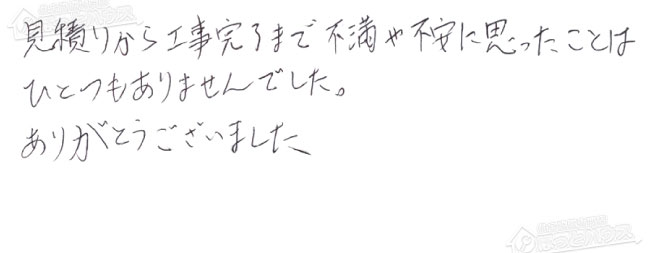 見積りから工事完了まで不満や不安に思ったことは
ひとつもありませんでした。
ありがとうございました